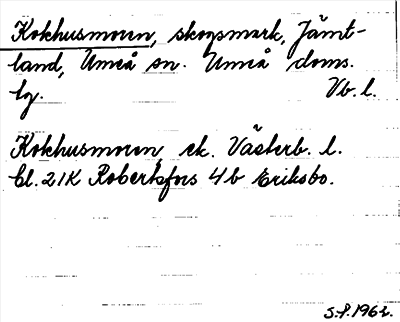 Kokhusmoren, skogsmark, Jämt-
land, Umeå sn. Umeå doms.
lg. Vb. l.
Kokhusmoren, ek. Västerb. l.
Bl. 21K Robertsfors 4b Eriksbo.
S.P. 1962.